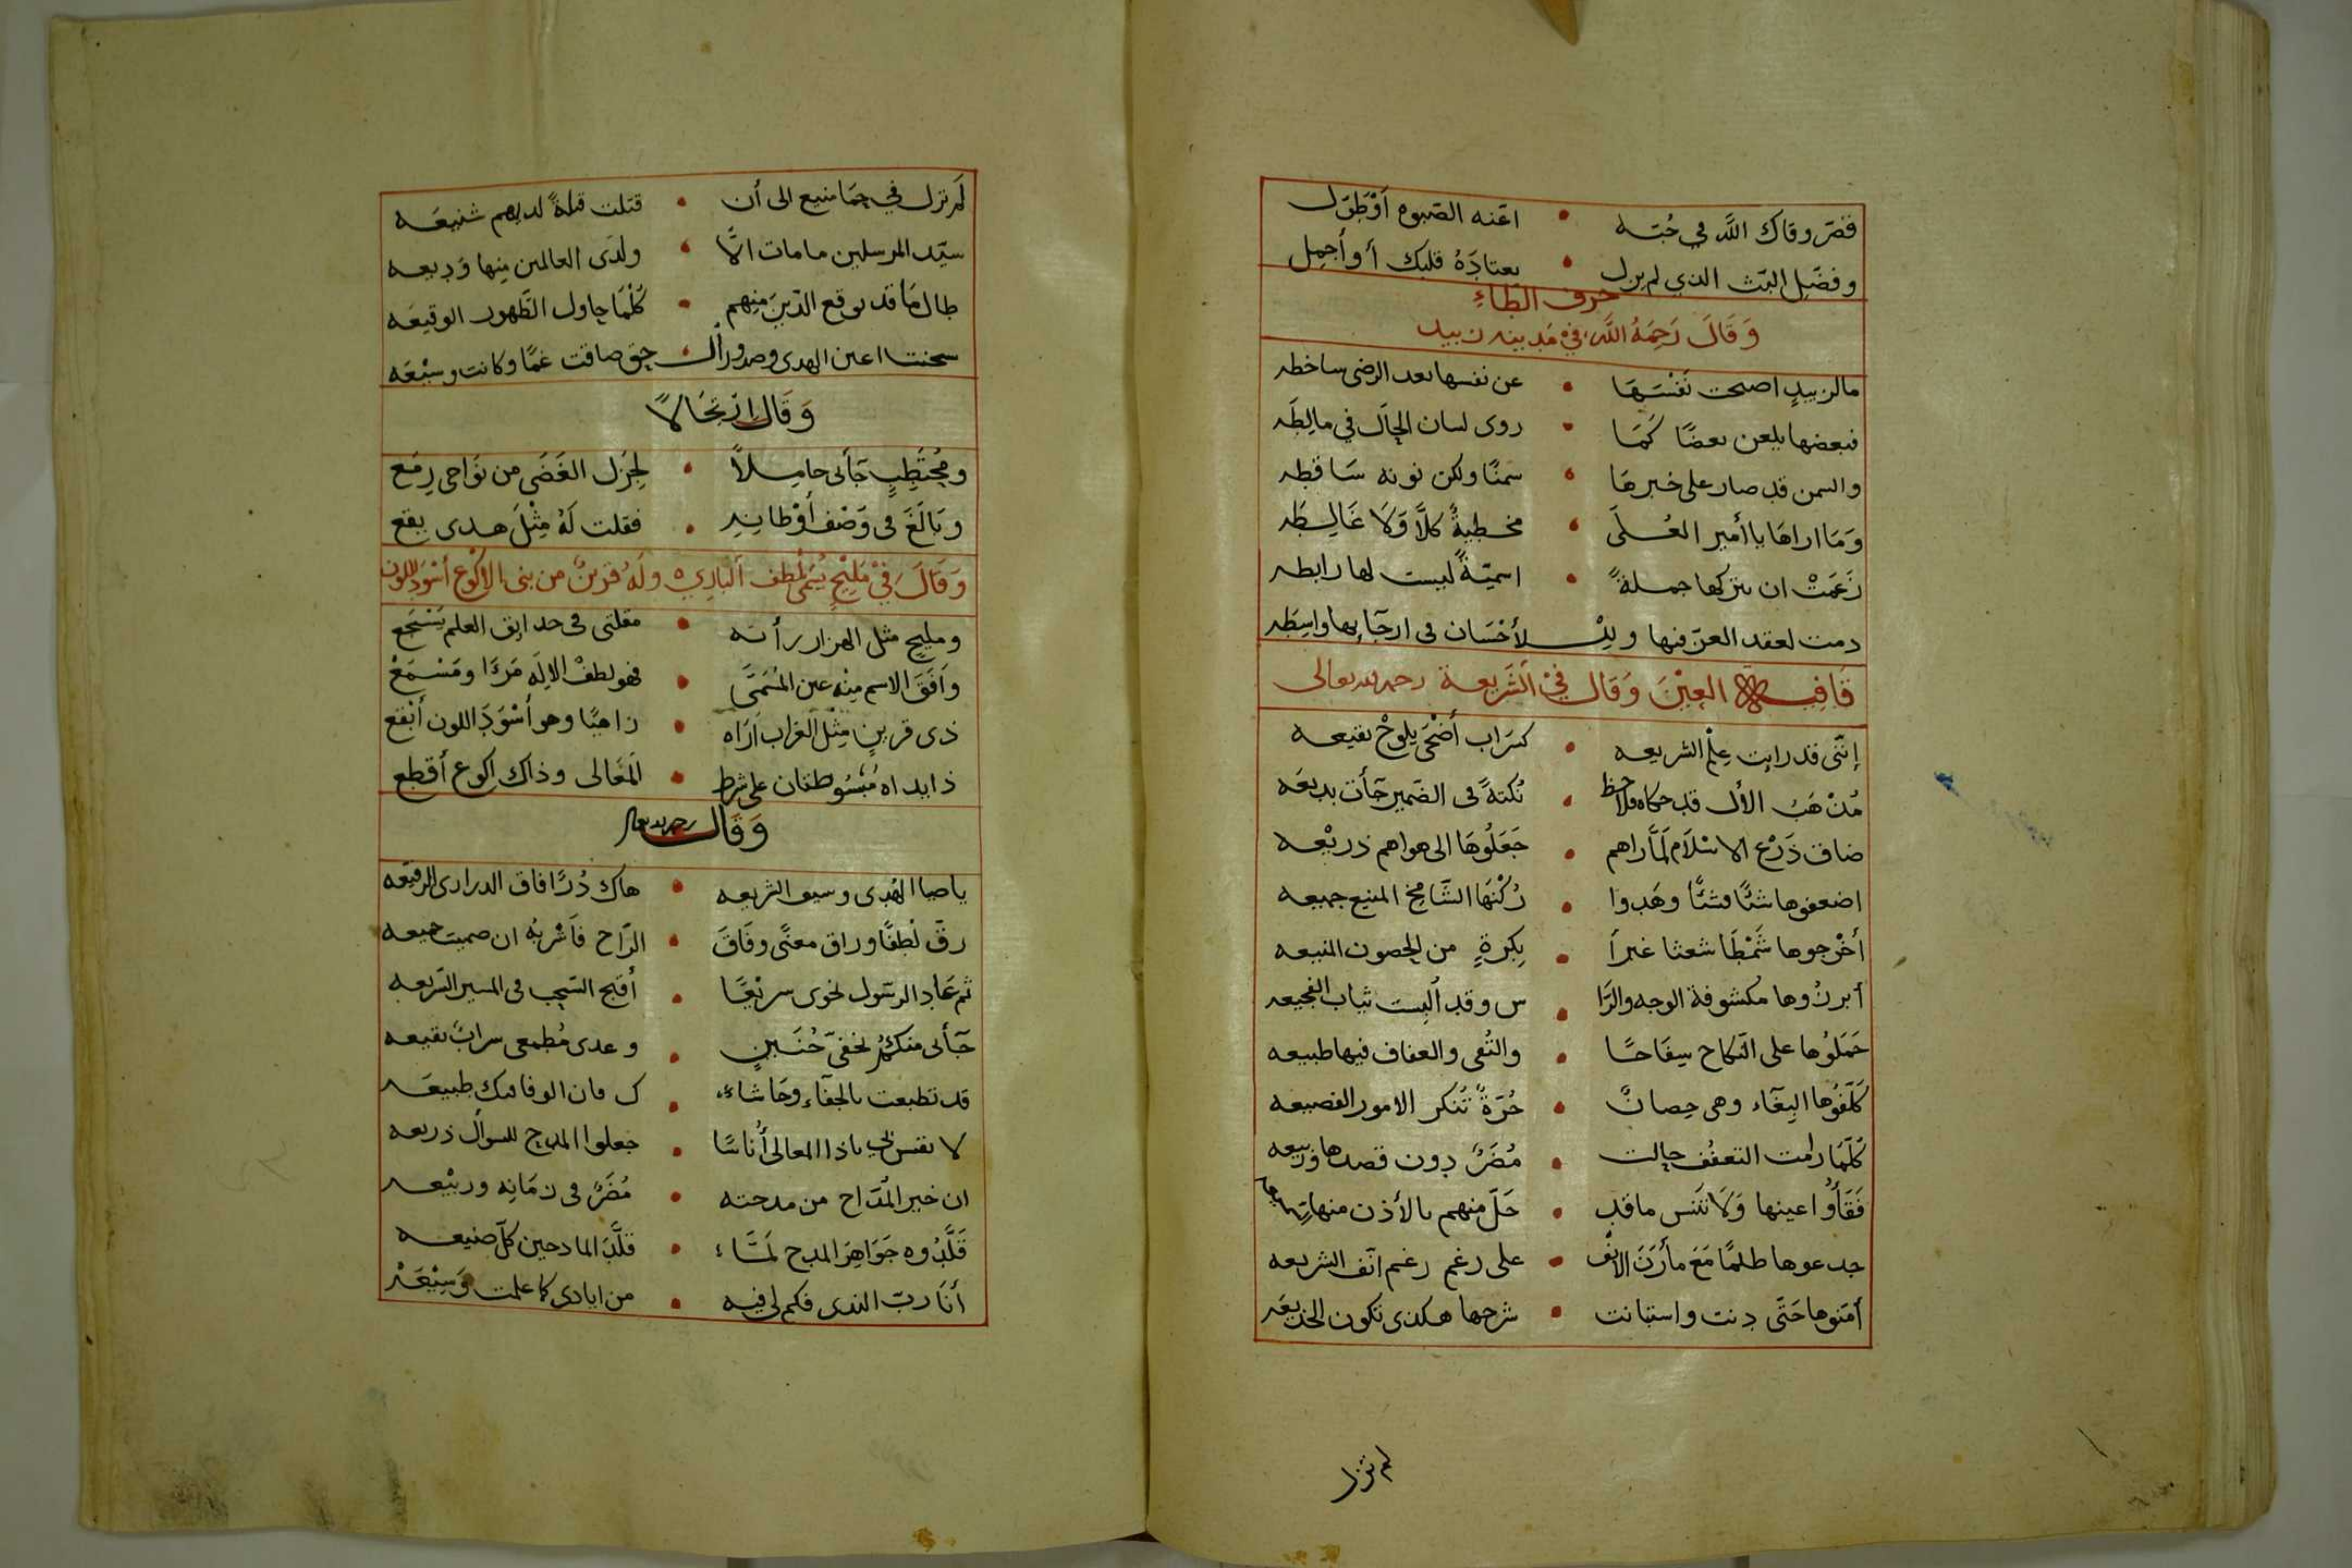 قصر وقاك الله في حبه • اعنه الصبوه أوْ طَوّل
وفضّل البث الذي لم يزل • يعتادَهُ قلبك أو أجمِل
حرف الطّاءِ
وَقَالَ رَحِمَهُ اللَّه، فيْ مَدينه زبيد
مالزبيدٍ اصبحت نَفْسَهَا • عن نفسها بعد الرضى ساخطه
فبعضها يلعن بعضًا كَمَا • روى لسان الحَال في مالِطَه
والسمن قد صار على خبرهَا • سَمنًا ولكن نونه سَاقطه
وَمَا اراهَا يا أمير العُلَى • مخطيةً كلَّا وَلَا غَالِطَه
زَعَمَتْ ان تتركها جملةً • اسميّةً ليست لها رابطه
دمت لعقد العزّ فيها وللأحْسَان في ارجَآيها واسِطَه
قافيه العِيْنَ وَقَال فيْ الشَّريعة رحمه الله تعالى
إنّنى قد رايت عِلْم الشريعه • كسَراب أضْحَى يلوحْ بقيعه
مُذْهَب الأل قد حكاه ولاحظ • نُكتةً فى الضمير جَأت بديعَه
ضاق ذَرْع الاسْلَام لمَّا راهم • جَعَلُوهَا الى هواهم ذريْعه
اضعفوها شئًا فشئًا وهَدوا • رُكْنَهَا الشَّامِخ المنيع جميعه
أخْرجوها شَمْطَا شعثا غبرآ • بِكرةٍ من الحصون المنيعه
أبرزُوها مكشوفة الوجه والرَّا • س وقد اُلبِست ثياب الفجيعه
حَمَلوُها على النّكاح سِفَاحًا • والتُقى والعفاف فيها طبيعه
كَلّفَوُها البِغَآء وهى حِصانٌ • حُرَةً تُنكر الامور الفضيعه
كلَّمَا رامت التعفُف حالت • مُضَرٌ دون قصدها وَربيعه
فَقَأَوُا اعينها وَلَا تَنس ماقد • حَلّ منهم بالأذن منها
جدعوها ظلمًا مَعَ مأرَنَ الانْف • على رغم رغم انّف الشريعه
أمّنوها حَتّى دنت واستبانت • شرحها هكذى تكون الخديعَه
لم تزل
لَم تزل في حِمَا منيع الى أن • قتلت قتلةً لديهم شنيعَه
سيّد المرسلين مامات الّا • ولَدَى العالمين مِنها وَديعه
طال مَا قد يوقع الدّينَ مِنهم • كُلْمَا حاول الظّهور الوقيعَه
سخنت اعين الهدى وصدور ال • حق ضاقت غمًّا وكانت وسِيْعَه
وَقَال ارْتجَالًا
ومُحْتَطِبٍ جَآنى حامِلاً • لجِزَل الغَضَى من نوَاحى رِمَع
وبَالَغَ فى وَصْف أوْطانِهِ • فقلت لَهُ مِثْلَ هدى يقع
وَقَالَ، فيْ مَليْحٍ يُسَمّى لطف الباري ه ولَهُ قرينٌ من بنى الاكْوَع أسْوَد اللون
ومليحٍ مثل الهزار رأته • مقلتى فى حدايق العلم يَسْجَع
وَافَقَ الاسم مِنْه عين المُسَمَّى • فهو لطفْ الالَه مَرءًا ومَسْمَعْ
ذى قرينٍ مِثْل الغراب أرَاه • زاهيًا وهو أسْوَدَ اللون أبْقع
ذا يداه مبْسُوطتان على شرط • المَعَالى وذاك اكوع أقطع
وَقَال رحمه الله تعالى
ياضيا الهُدى وسيف الشريعه • هاك دُرًّا فاق الدرارى الرفيعَه
رقّ لُطفًا وراق معنًى وفَاقَ • الرّاح فَاشْربْه ان صميت جميعه
ثم عَاد الرسَول نحوى سريْعًا • أقبح السّجب فى المسير السّريعه
جَآنى منكمُ بخفىّ حُنَينٍ • وعدى مُطمعى سرابٌ بقيعه
قد تطبعت بالجفآء وحَاشاءَ • ك فان الوفا منك طبيعَه
لا تقس بي ياذا المعالى أُناسًا • جعلوا المدح للسوأل ذريعه
ان خير المُدّاح من مدحته • مُضَرٌ فى زمَانِه وربيْعه
قَلَّدُوه جَوَاهِرَ المدح لَمَّاء • قَلَّدَ المادحين كلّ صنيعه
أنَا ربّ الندى فكم لي فيه • من ايادى كما علمت وَسِيْعَهْ